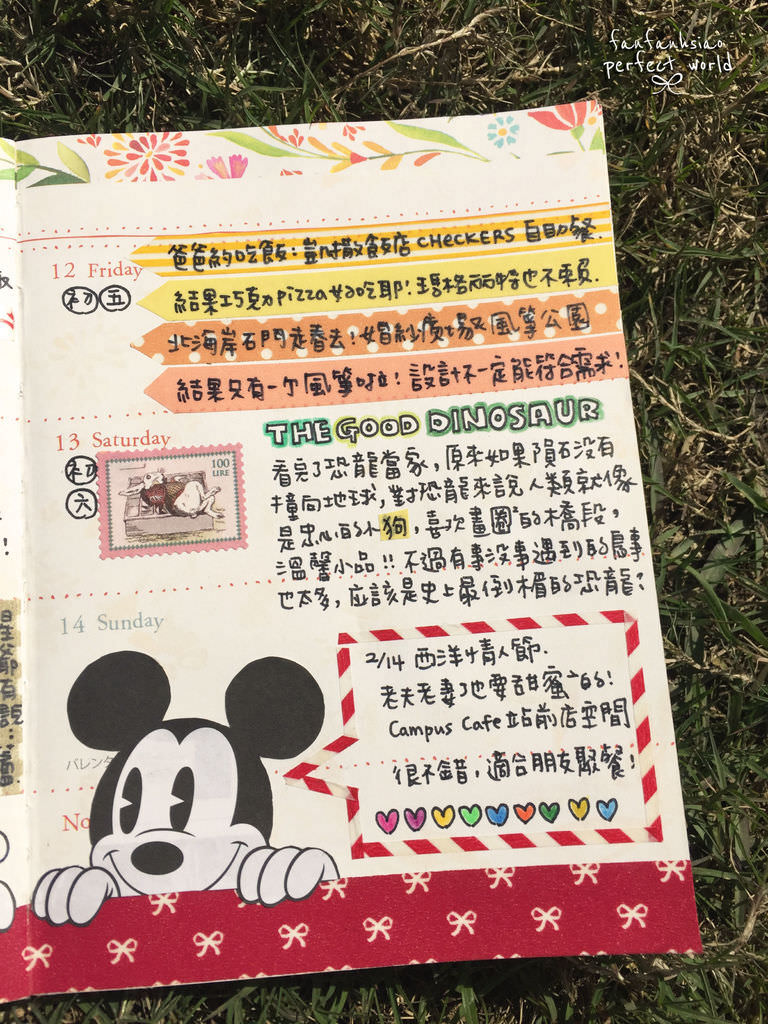 fanfanhsiao
perfect world
12 Friday
初五
爸爸約吃飯：凱撒飯店 CHECKERS 自助餐.
結果巧克力pizza好吃耶！瑪格麗特也不賴.
北海岸石門走春去！婚紗廣場及風箏公園
結果只有一个風箏啦！設計不一定能符合需求！
13 Saturday
初六
100
LIRE
THE GOOD DINOSAUR
看完了恐龍當家，原來如果隕石沒有
撞向地球，對恐龍來說人類就像
是忠心的小狗，喜歡畫圈的橋段，
溫馨小品!! 不過有事沒事遇到的鳥事
也太多，应該是史上最倒楣的恐龍？
14 Sunday
2/14 西洋情人節.
老夫老妻了也要甜蜜的！
Campus Cafe 站前店空間
很不錯，適合朋友聚餐！
バレンタ
No